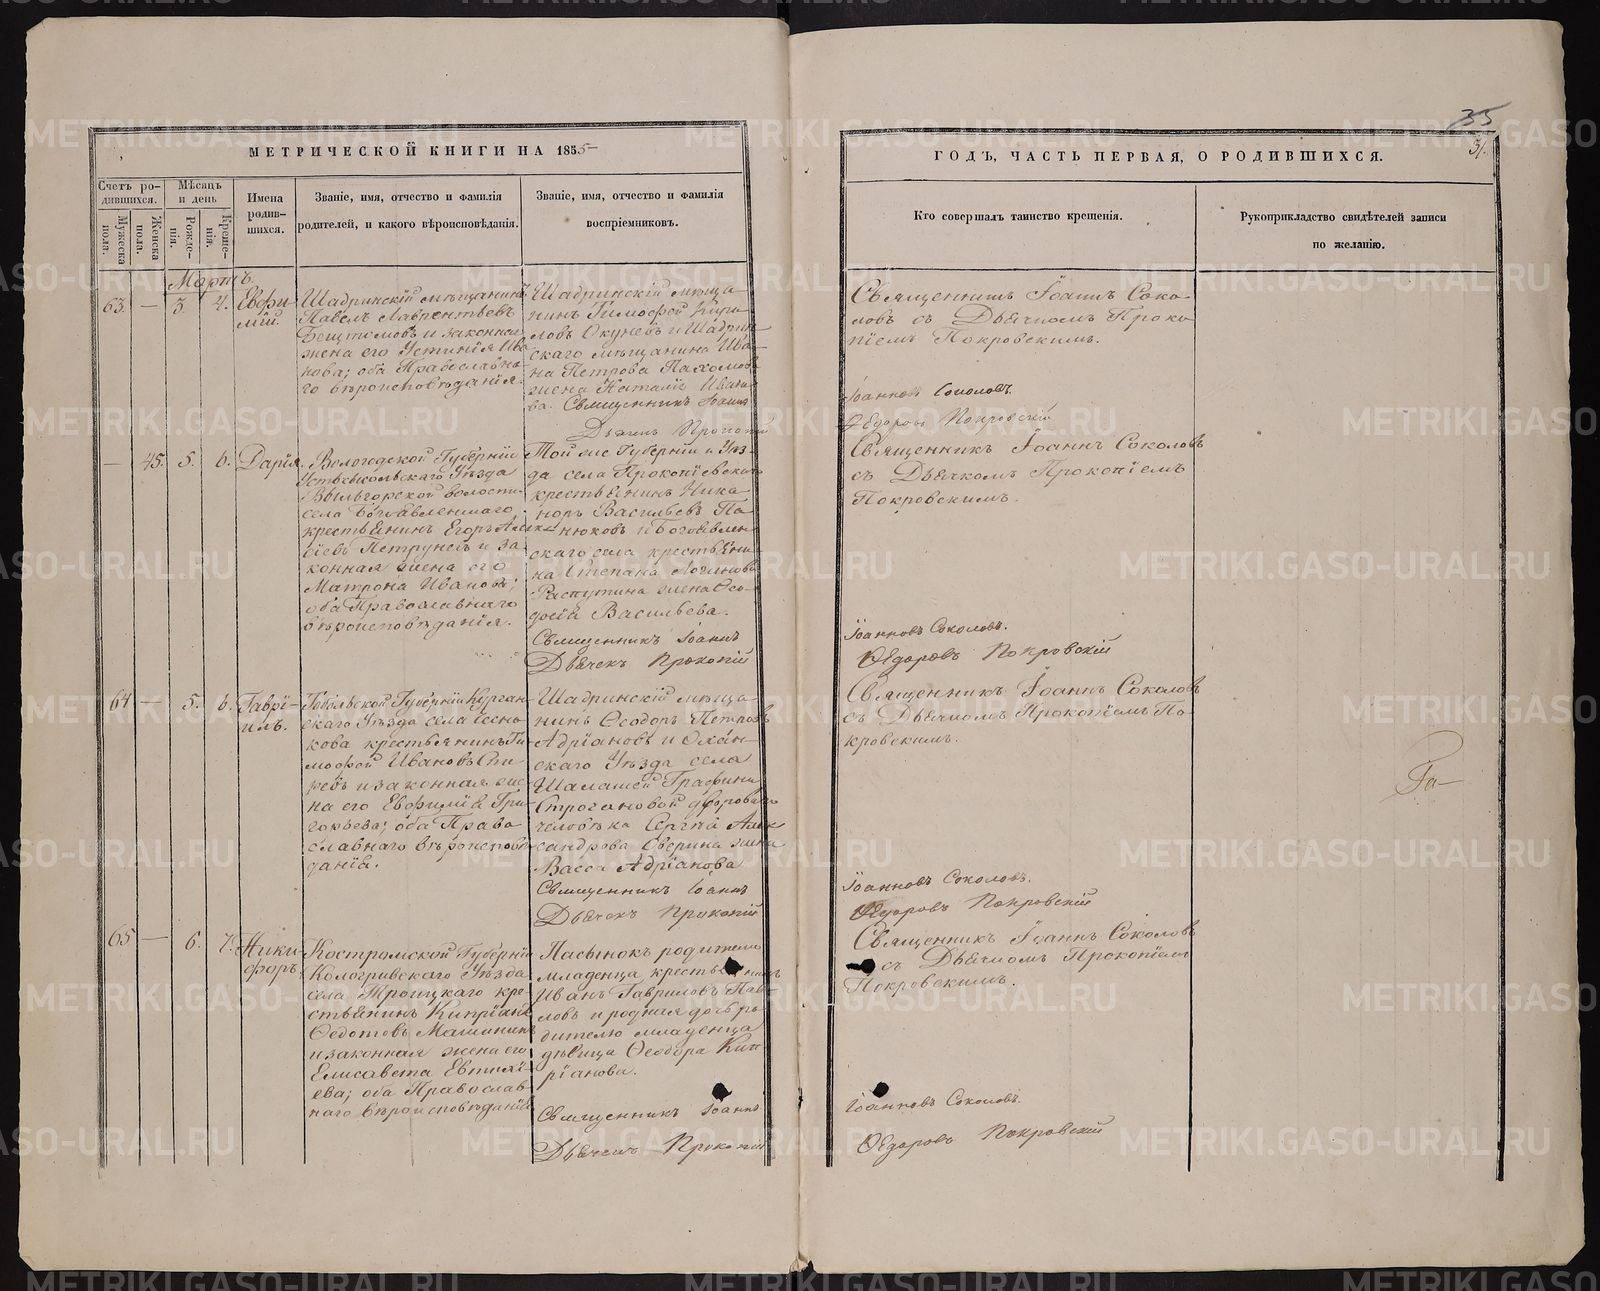 35
31.
МЕТРИЧЕСКОЙ КНИГИ НА 1855
ГОДЪ, ЧАСТЬ ПЕРВАЯ, О РОДИВШИХСЯ.
Счетъ ро-
дившихся.
Мужеска
пола.
Женска
пола.
Мѣсяцъ
и день
Рожде-
нія.
Креще-
нія.
Имена
родив-
шихся.
Званіе, имя, отчество и фамилія
родителей, и какого вѣроисповѣданія.
Званіе, имя, отчество и фамилія
воспріемниковъ.
Кто совершалъ таинство крещенія.
Рукоприкладство свидѣтелей записи
по желанію.
Мартъ
63. — 3. 4.
Евфи-
мій.
Шадринскій мѣщанинъ
Павелъ Лаврентьевъ
и законная
жена его Устинія Ива
нова; оба Православна-
го вѣроисповѣданія.
Шадринскій мѣща-
нинъ Тимофей Кири-
ловъ Окуневъ и Шадрин-
скаго мѣщанина Ива-
на Петрова Пахомова
жена Наталія Ивано-
ва. Священникъ Іоаннъ
Дьячекъ Прокопій
Священникъ Іоаннъ Соко-
ловъ съ Дьячкомъ Проко-
піемъ Покровскимъ.
Іоанновъ Соколовъ.
Ѳедоровъ Покровскій
— 45. 5. 6.
Дарія.
Вологодской Губерніи
Устьсысольскаго Уѣзда
Вильгорской волости
села Богоявленскаго
крестьянинъ Егоръ Алек-
сѣевъ Петруневъ и за-
конная жена его
Матрона Иванова;
оба Православнаго
вѣроисповѣданія.
Той же Губерніи и Уѣз-
да села Прокопіевскаго
крестьянинъ Ника-
норъ Васильевъ Па-
нюковъ и Богоявлен-
скаго села крестьяни-
на Степана Логинова
Распутина жена Ѳео-
досія Васильева.
Священникъ Іоаннъ
Дьячекъ Прокопій
Священникъ Іоаннъ Соколовъ
съ Дьячкомъ Прокопіемъ
Покровскимъ.
Іоанновъ Соколовъ.
Ѳедоровъ Покровскій
64 — 5. 6.
Гаврі-
илъ.
Тобольской Губерніи Курган-
скаго Уѣзда села
кова крестьянинъ Ти-
мофей Ивановъ Спи-
ревъ и законная же-
на его Евфимія Гри-
горьева; оба Право
славнаго вѣроисповѣ-
данія.
Шадринскій мѣща-
нинъ Ѳеодоръ Петровъ
Адріановъ и Охан-
скаго Уѣзда села
Графини
Строгановой дворовыхъ
человѣка Сергѣя Алек
сандрова Оверина жена
Васса Адріанова
Священникъ Іоаннъ
Дьячекъ Прокопій
Священникъ Іоаннъ Соколовъ
съ Дьячкомъ Прокопіемъ По-
кровскимъ.
Іоанновъ Соколовъ.
Ѳедоровъ Покровскій
65 — 6. 7.
Ники-
форъ.
Костромской Губерніи
Кологривскаго Уѣзда
села Троицкаго кре-
стьянинъ Кипріанъ
Ѳедотовъ Машинъ
и законная жена его
Елисавета Евтихі-
ева; оба Православ-
наго вѣроисповѣданія
Пасынокъ родителя
младенца крестьянинъ
Иванъ Гавриловъ Пав-
ловъ и родная дочь ро-
дителю младенца
дѣвица Ѳеодора Кип-
ріанова.
Священникъ Іоаннъ
Дьячекъ Прокопій
Священникъ Іоаннъ Соколовъ
съ Дьячкомъ Прокопіемъ
Покровскимъ.
Іоанновъ Соколовъ.
Ѳедоровъ Покровскій
METRIKI.GASO-URAL.RU